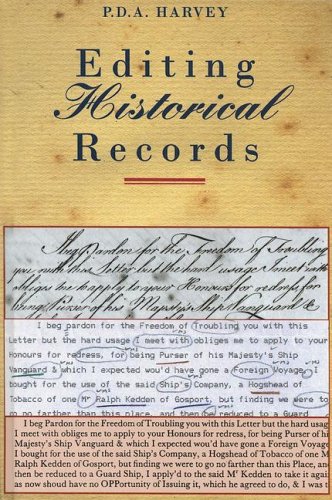 P.D.A. HARVEY
Editing
Historical
Records
I beg Pardon for the Freedom of Troubling
you with this Letter but the hard usage I meet with
obliges me to apply to your Honours for redress, for
being Purser of his Majesty's Ship Vanguard &
I beg pardon for the Freedom of Troubling you with this
Letter but the hard usage I meet with obliges me to apply to your
Honours for redress, for being Purser of his Majesty's Ship
Vanguard & which I expected wou'd have gone a Foreign Voyage I
bought for the use of the said Ship's Company, a Hogshead of
Tobacco of one Mr Ralph Kedden of Gosport, but finding we were to
go no farther than this place, and then be reduced to a Guard
I beg Pardon for the Freedom of Troubling you with this Letter but the hard usag
I meet with obliges me to apply to your Honours for redress, for being Purser of hi
Majesty's Ship Vanguard & which I expected wou'd have gone a Foreign Voyage
I bought for the use of the said Ship's Company, a Hogshead of Tobacco of one M
Ralph Kedden of Gosport, but finding we were to go no farther than this Place, an
then be reduced to a Guard Ship, I apply'd to the said Mr Kedden to take it agai
as now shou'd have no OPPortunity of Issuing it, which he agreed to do, & I was t